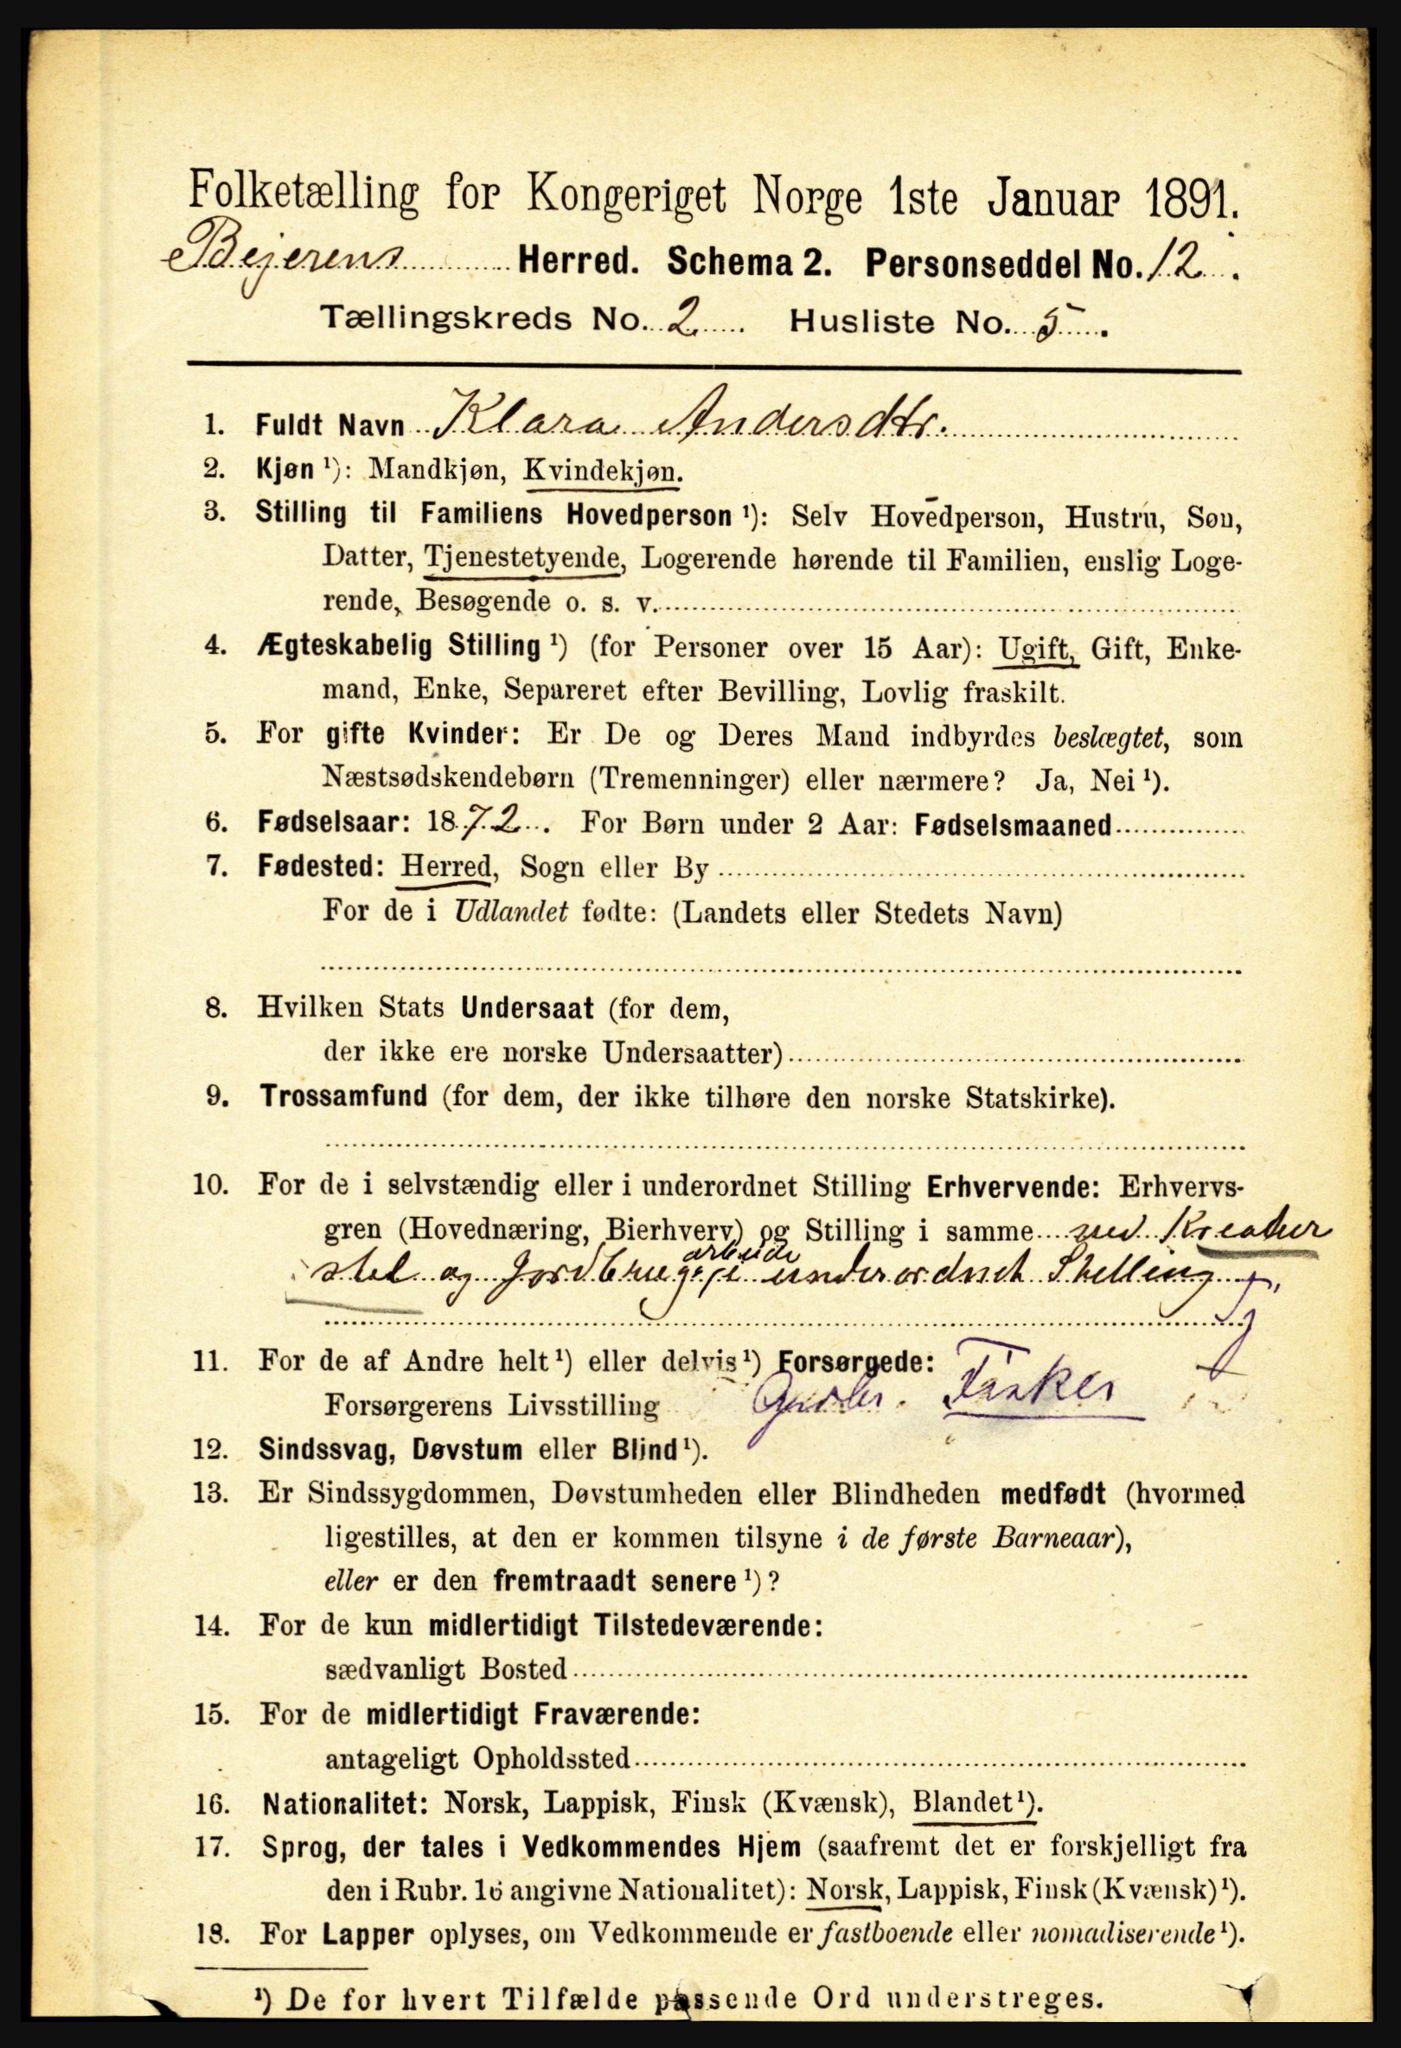 Folketælling for Kongeriget Norge 1ste Januar 1891.
Bejerens Herred. Schema 2. Personseddel No. 12.
Tællingskreds No. 2. Husliste No. 5.
1. Fuldt Navn Klara Andersdtr.
2. Kjøn ¹): Mandkjøn, Kvindekjøn.
3. Stilling til Familiens Hovedperson ¹): Selv Hovedperson, Hustru, Søn,
Datter, Tjenestetyende, Logerende hørende til Familien, enslig Loge-
rende, Besøgende o. s. v.
4. Ægteskabelig Stilling ¹) (for Personer over 15 Aar): Ugift, Gift, Enke-
mand, Enke, Separeret efter Bevilling, Lovlig fraskilt.
5. For gifte Kvinder: Er De og Deres Mand indbyrdes beslægtet, som
Næstsødskendebørn (Tremenninger) eller nærmere? Ja, Nei ¹).
6. Fødselsaar: 1872. For Børn under 2 Aar: Fødselsmaaned
7. Fødested: Herred, Sogn eller By
For de i Udlandet fødte: (Landets eller Stedets Navn)
8. Hvilken Stats Undersaat (for dem,
der ikke ere norske Undersaatter)
9. Trossamfund (for dem, der ikke tilhøre den norske Statskirke).
10. For de i selvstændig eller i underordnet Stilling Erhvervende: Erhvervs-
gren (Hovednæring, Bierhverv) og Stilling i samme med Kreatur
stel og Jordbrugsarbeide i underordnet Stilling
Tj
11. For de af Andre helt ¹) eller delvis ¹) Forsørgede:
Forsørgerens Livsstilling Gaardbr. Fisker
12. Sindssvag, Døvstum eller Blind ¹).
13. Er Sindssygdommen, Døvstumheden eller Blindheden medfødt (hvormed
ligestilles, at den er kommen tilsyne i de første Barneaar),
eller er den fremtraadt senere ¹)?
14. For de kun midlertidigt Tilstedeværende:
sædvanligt Bosted
15. For de midlertidigt Fraværende:
antageligt Opholdssted
16. Nationalitet: Norsk, Lappisk, Finsk (Kvænsk), Blandet ¹).
17. Sprog, der tales i Vedkommendes Hjem (saafremt det er forskjelligt fra
den i Rubr. 16 angivne Nationalitet): Norsk, Lappisk, Finsk (Kvænsk) ¹).
18. For Lapper oplyses, om Vedkommende er fastboende eller nomadiserende ¹).
¹) De for hvert Tilfælde passende Ord understreges.